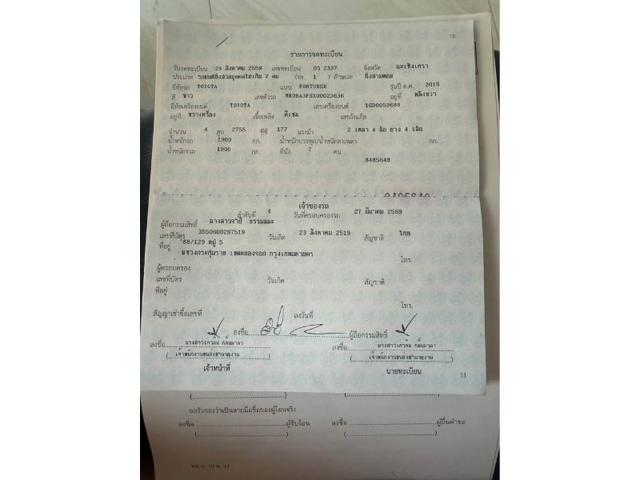 10
รายการจดทะเบียน
วันจดทะเบียน 29 สิงหาคม 2559 เลขทะเบียน กว 2337 จังหวัด ฉะเชิงเทรา
ประเภท รถยนต์นั่งส่วนบุคคลไม่เกิน 7 คน (รย. 1 ) ลักษณะ นั่งสามตอน
ยี่ห้อรถ TOYOTA แบบ FORTUNER รุ่นปี ค.ศ. 2015
สี ขาว เลขตัวรถ อยู่ที่
ยี่ห้อเครื่องยนต์ TOYOTA เลขเครื่องยนต์
อยู่ที่ ขวาเครื่อง เชื้อเพลิง ดีเซล เลขถังแก๊ส
จำนวน 4 สูบ 2755 ซีซี 177 แรงม้า 2 เพลา 4 ล้อ ยาง 4 เส้น
น้ำหนักรถ 1900 กก. น้ำหนักบรรทุก/น้ำหนักลงเพลา กก.
น้ำหนักรวม 1900 กก. ที่นั่ง 7 คน
8485648
เจ้าของรถ
ลำดับที่ 4 วันที่ครอบครองรถ 27 มีนาคม 2569
ผู้ถือกรรมสิทธิ์
เลขที่บัตร 3550600297519 วันเกิด 23 สิงหาคม 2519 สัญชาติ ไทย
ที่อยู่ 88/129 หมู่ 5
แขวงกระทุ่มราย เขตหนองจอก กรุงเทพมหานคร โทร.
ผู้ครอบครอง
เลขที่บัตร วันเกิด สัญชาติ
ที่อยู่ โทร.
สัญญาเช่าซื้อเลขที่ ลงวันที่
ลงชื่อ ผู้ถือกรรมสิทธิ์
ลงชื่อ ลงชื่อ
(เจ้าพนักงานขนส่งชำนาญงาน) (เจ้าพนักงานขนส่งชำนาญงาน)
เจ้าหน้าที่ นายทะเบียน
11
ขอรับรองว่าเป็นลายมือชื่อของผู้โอนจริง
ลงชื่อ ผู้รับโอน ลงชื่อ ผู้ยื่นคำขอ